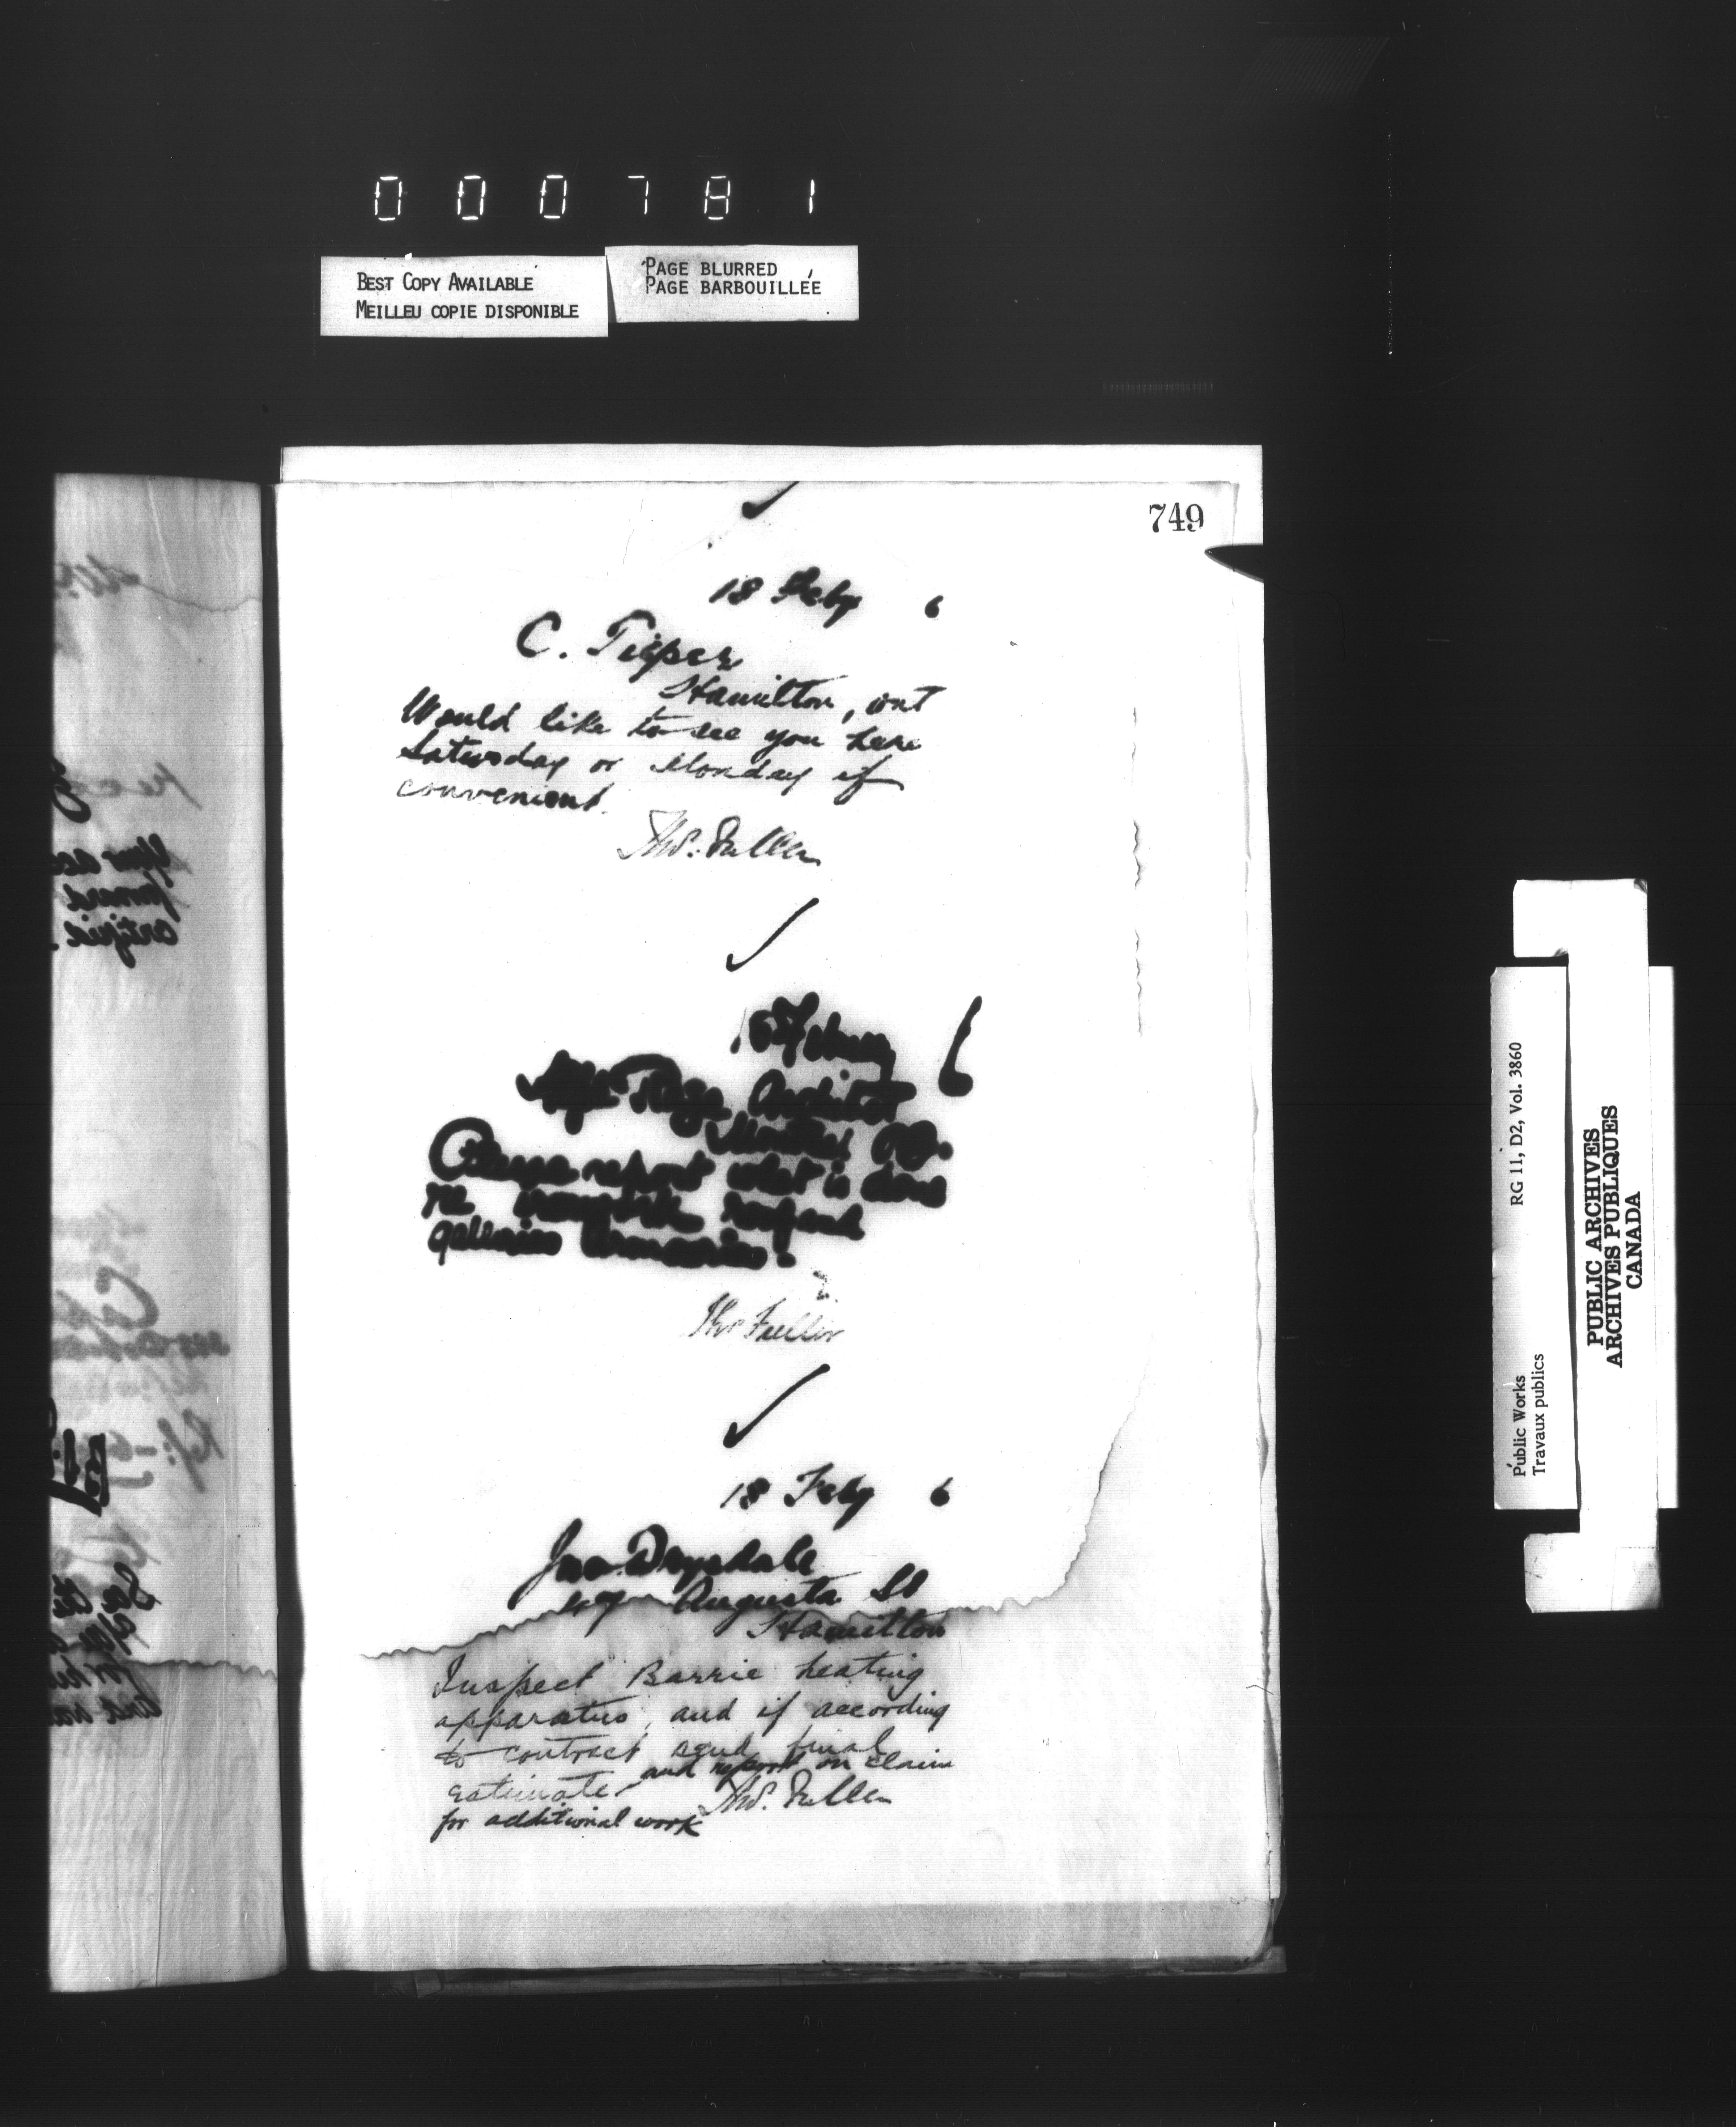 000781
BEST COPY AVAILABLE
MEILLEU COPIE DISPONIBLE
PAGE BLURRED
PAGE BARBOUILLÉE
749
18 Feby 6
C. Tipper
Hamilton, ont
Would like to see you here
Saturday or Monday if
convenient.
Thos. Fuller
6
Architect
P.Q.
Please report what is done
re roof and
galleries armouries.
Thos Fuller
18 Feby 6
Jno. Drysdale
Augusta St
Hamilton
Inspect Barrie heating
apparatus, and if according
to contract send final
estimate and report on claim
for additional work
Thos. Fuller
Public Works
Travaux publics
RG 11, D2, Vol. 3860
PUBLIC ARCHIVES
ARCHIVES PUBLIQUES
CANADA